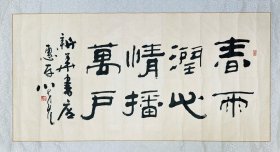 春雨
潤心
情播
萬戶
新華書店
惠存